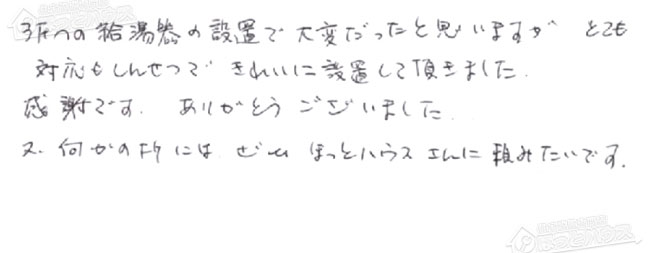 3Fへの給湯器の設置で大変だったと思いますが とても
対応もしんせつで きれいに設置して頂きました.
感謝です. ありがとうございました.
又. 何かの時には ぜひ ほっとハウスさんに頼みたいです.
ほっとハウス